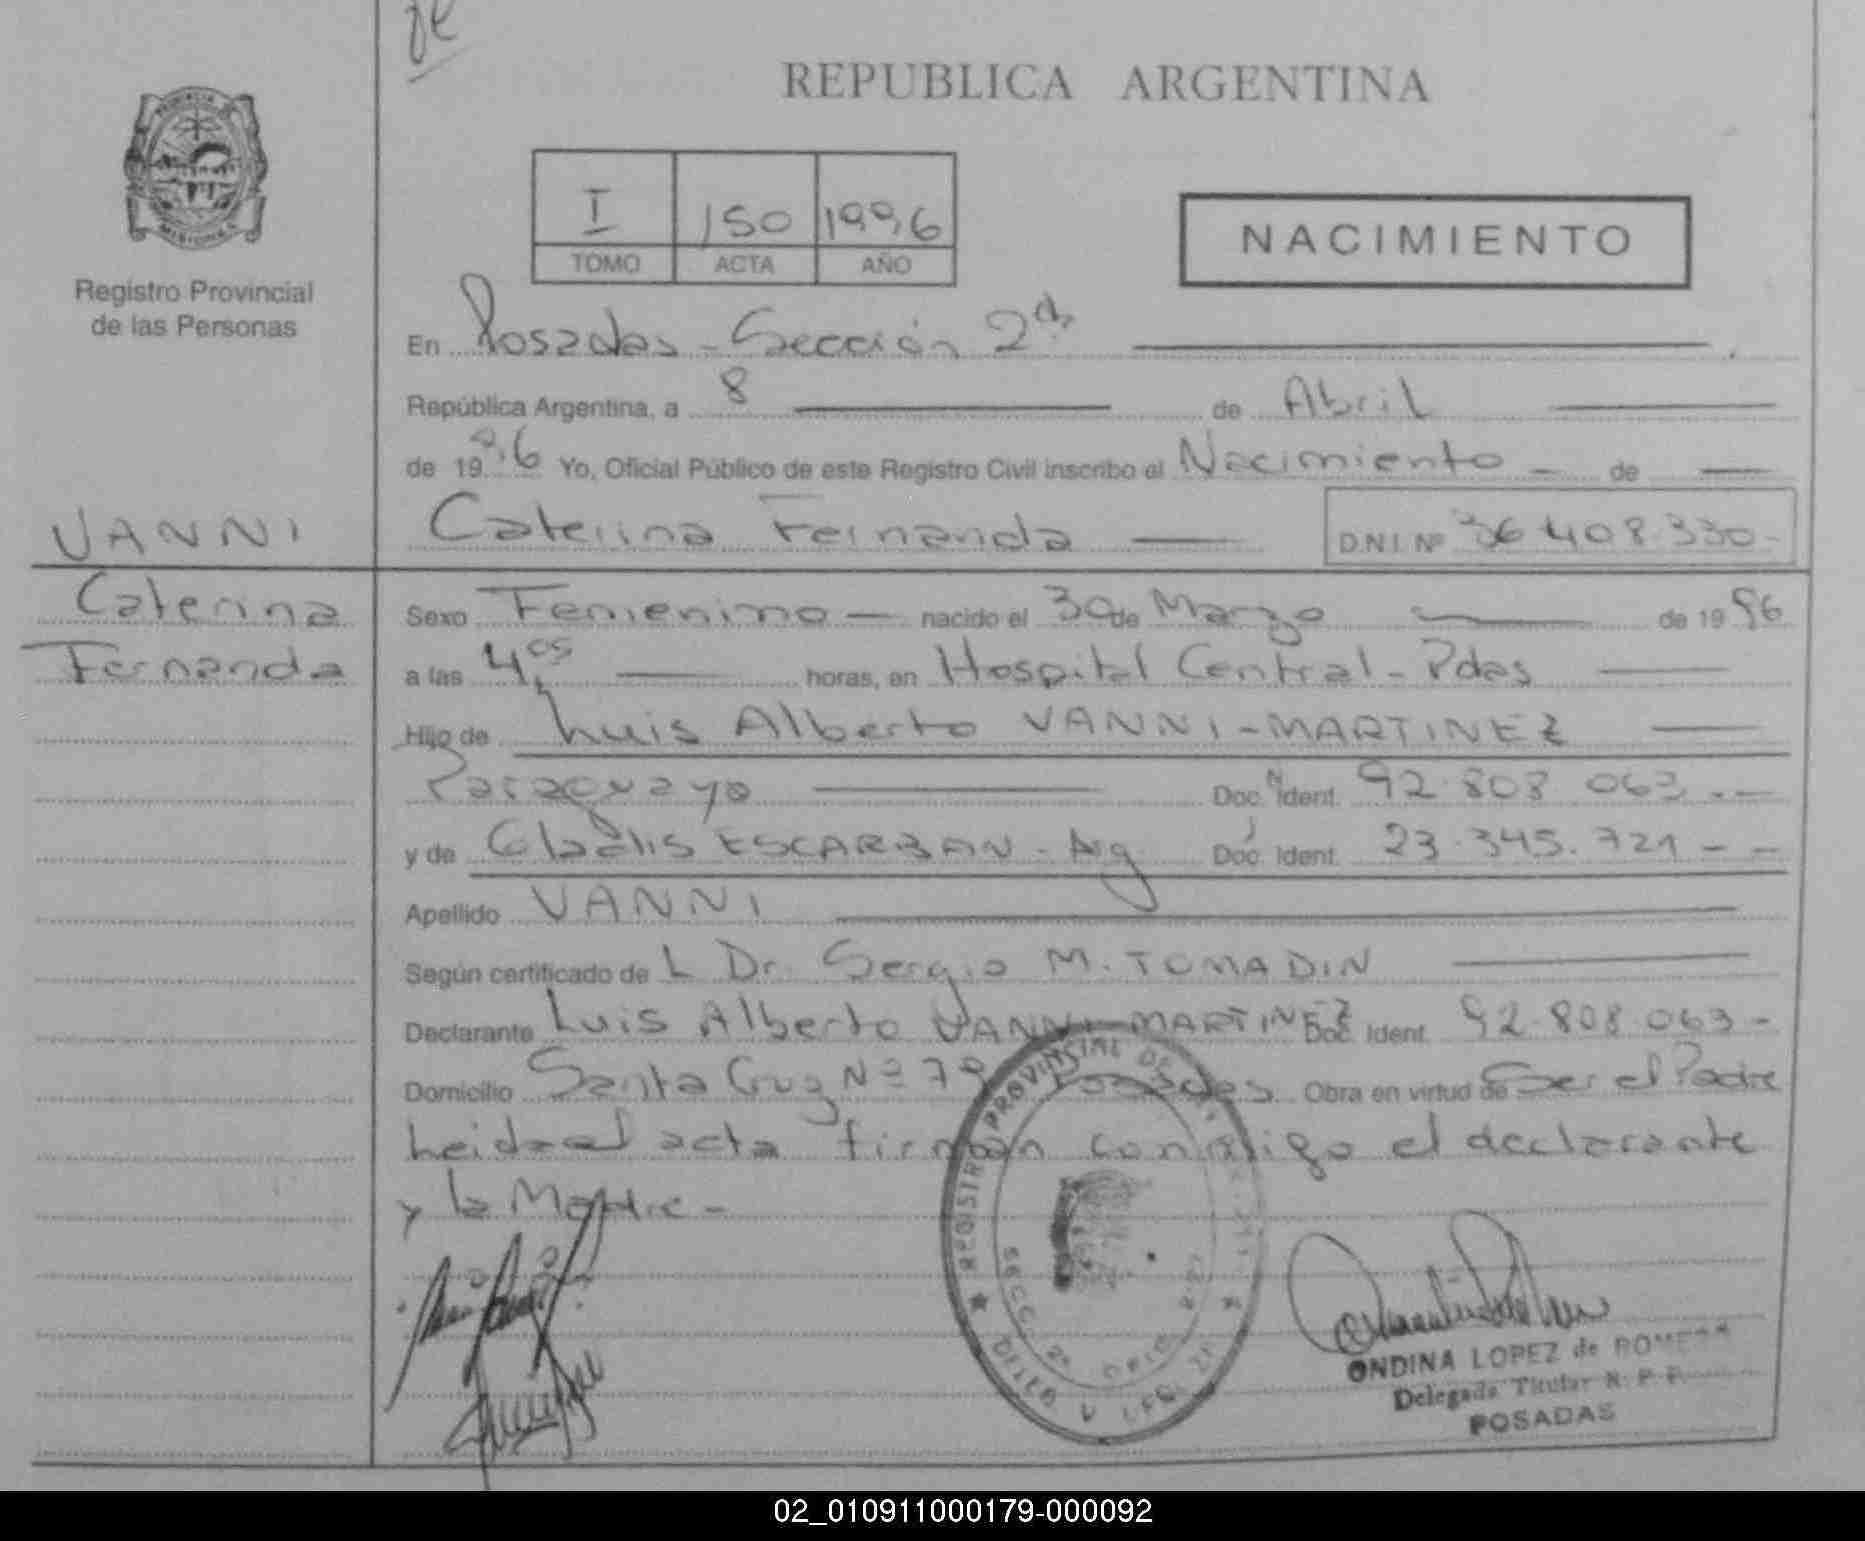 REPUBLICA ARGENTINA
PROVINCIA
MISIONES
Registro Provincial
de las Personas
I 150 1996
TOMO ACTA AÑO
NACIMIENTO
En Posadas - Sección 2da
República Argentina, a 8 de Abril
de 1996 Yo, Oficial Público de este Registro Civil inscribo el Nacimiento - de
VANNI
Caterina Fernanda
Caterina Fernanda D.N.I. Nº 36.408.330-
Sexo Femienino nacido el 30 de Marzo de 1996
a las 4,05 horas, en Hospital Central - Pdas
Hijo de Luis Alberto VANNI-MARTINEZ
Paraguayo Doc. Ident. 92.808.063.-
y de ESCARBAN - Arg Doc. Ident. 23.345.721 - -
Apellido VANNI
Según certificado de L Dr. Sergio M. TOMADIN
Declarante Luis Alberto VANNI-MARTINEZ Doc. Ident. 92.808.063-
Domicilio Santa Cruz Nº 79 Posadas Obra en virtud de Ser el Padre
Leida el acta firman conmigo el declarante
y la Madre -
REGISTRO PROVINCIAL DE
SECC. 2ª
ONDINA LOPEZ de ROMERO
Delegada Titular R. P. P.
POSADAS
02_010911000179-000092